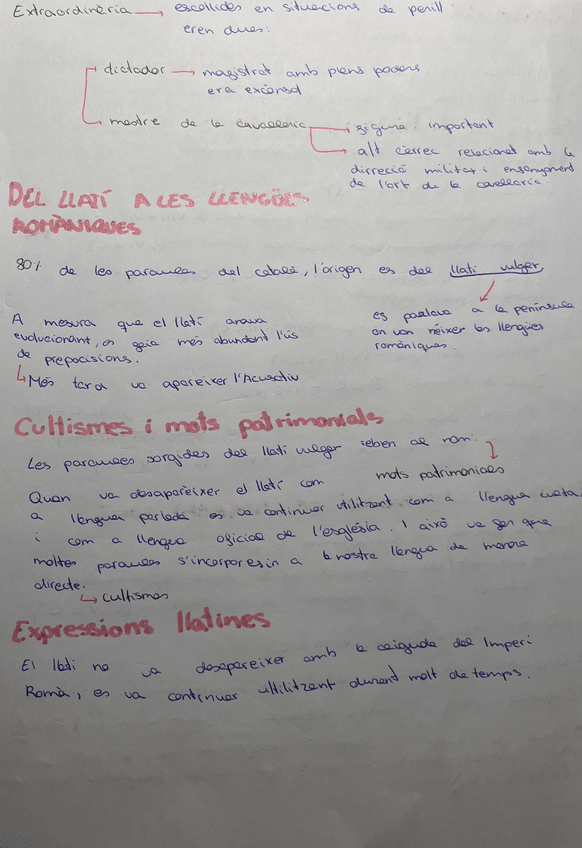 Extraordinària → escollides en situacions de perill
eren dues:
dictador → magistrat amb plens poders
era excensd
mestre de la cavaelleria → figura important
→ alt càrrec relacionat amb la
dirreció militar i ensenyament
de l'art de la cavallaria
DEL LLATÍ A LES LLENGÜES
ROMÀNIQUES
80% de les paraules del català, l'origen es del llatí vulgar
es parlava a la península
on van néixer les llengües
romàniques.
A mesura que el llatí anava
evolucionant, es feia més abundant l'ús
de prepocisions.
↳ Més tard va apareixer l'Acusatiu
Cultismes i mots patrimonials
Les paraules sorgides del llatí vulgar reben el nom:
mots patrimonials
Quan va desapareixer el llatí com
a llengua parlada es va continuar utilitzant com a llengua culta
i com a llengua oficial de l'església. I això va fer que
moltes paraules s'incorporesin a la nostra llengua de manera
directe.
↳ cultismes
Expressions llatines
El llatí no va desapareixer amb la caiguda del Imperi
Romà, es va continuar ultilitzant durant molt de temps.